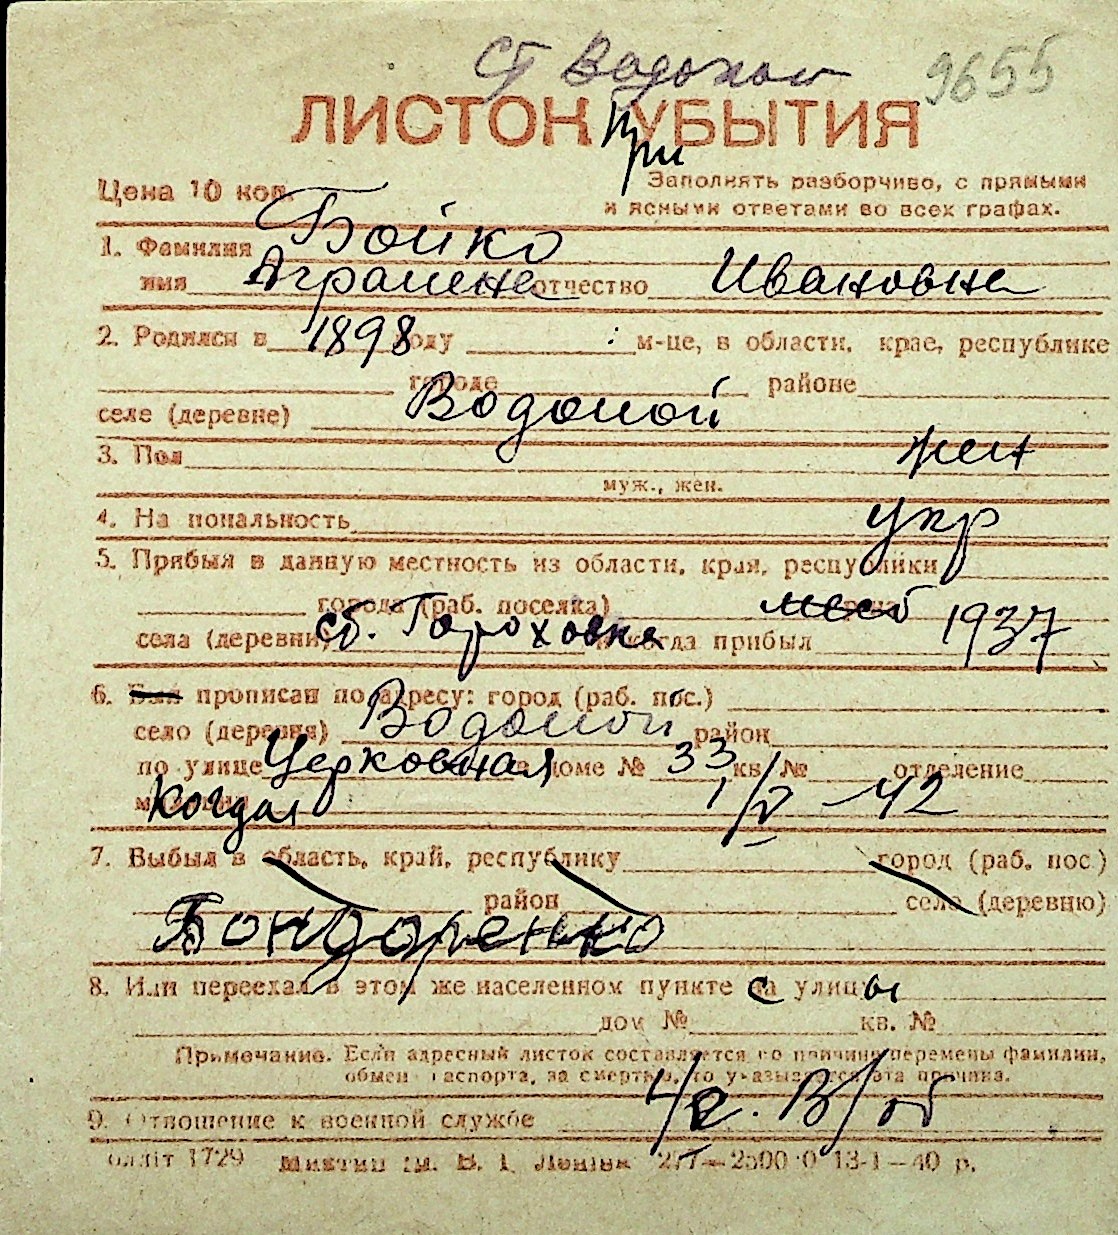 Ст Водопой 9655
ЛИСТОК при УБЫТИЯ
Цена 10 коп.
Заполнять разборчиво, с прямыми
и ясными ответами во всех графах.
1. Фамилия Бойко
имя Аграпена отчество Ивановна
2. Родился в 1898 году м-це, в области, крае, республике
городе районе
селе (деревне) Водопой
3. Пол жен
муж., жен.
4. Национальность укр
5. Прибыл в данную местность из области, края, республики
города (раб. поселка)
села (деревни) Гороховка и когда прибыл 1937
6. Был прописан по адресу: город (раб. пос.)
село (деревня) Водопой район
по улице Церковная в доме № 33 кв. № отделение
милиции когда 1/V-42
7. Выбыл в область, край, республику город (раб. пос.)
район село (деревню)
Бондаренко
8. Или переехал в этом же населенном пункте с улицы
дом № кв. №
Примечание. Если адресный листок составляется по причине перемены фамилии,
обмен паспорта, за смертью, то указывается эта причина.
9. Отношение к военной службе
облліт 1729 277—2500 0 13-1—40 р.